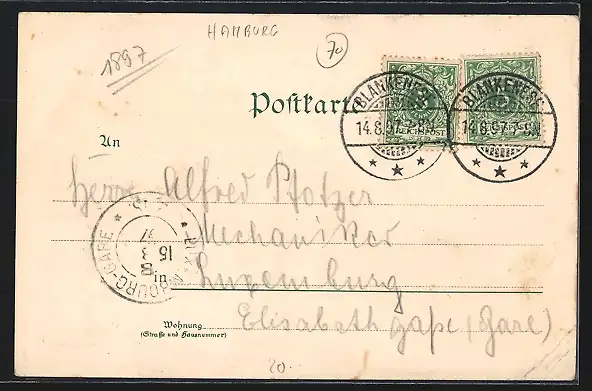 HAMBURG
70
1897
Postkarte
BLANKENESE
14.8.97.7-8N
* * *
REICHSPOST
BLANKENESE
14.8.97.7-8N
* * *
An
Herrn Alfred Pfotzer
Mechaniker
Luxemburg
Elisabeth gaße (Gare)
LUXEMBOURG-GARE
15 8 97
Wohnung
(Straße und Hausnummer)
20.